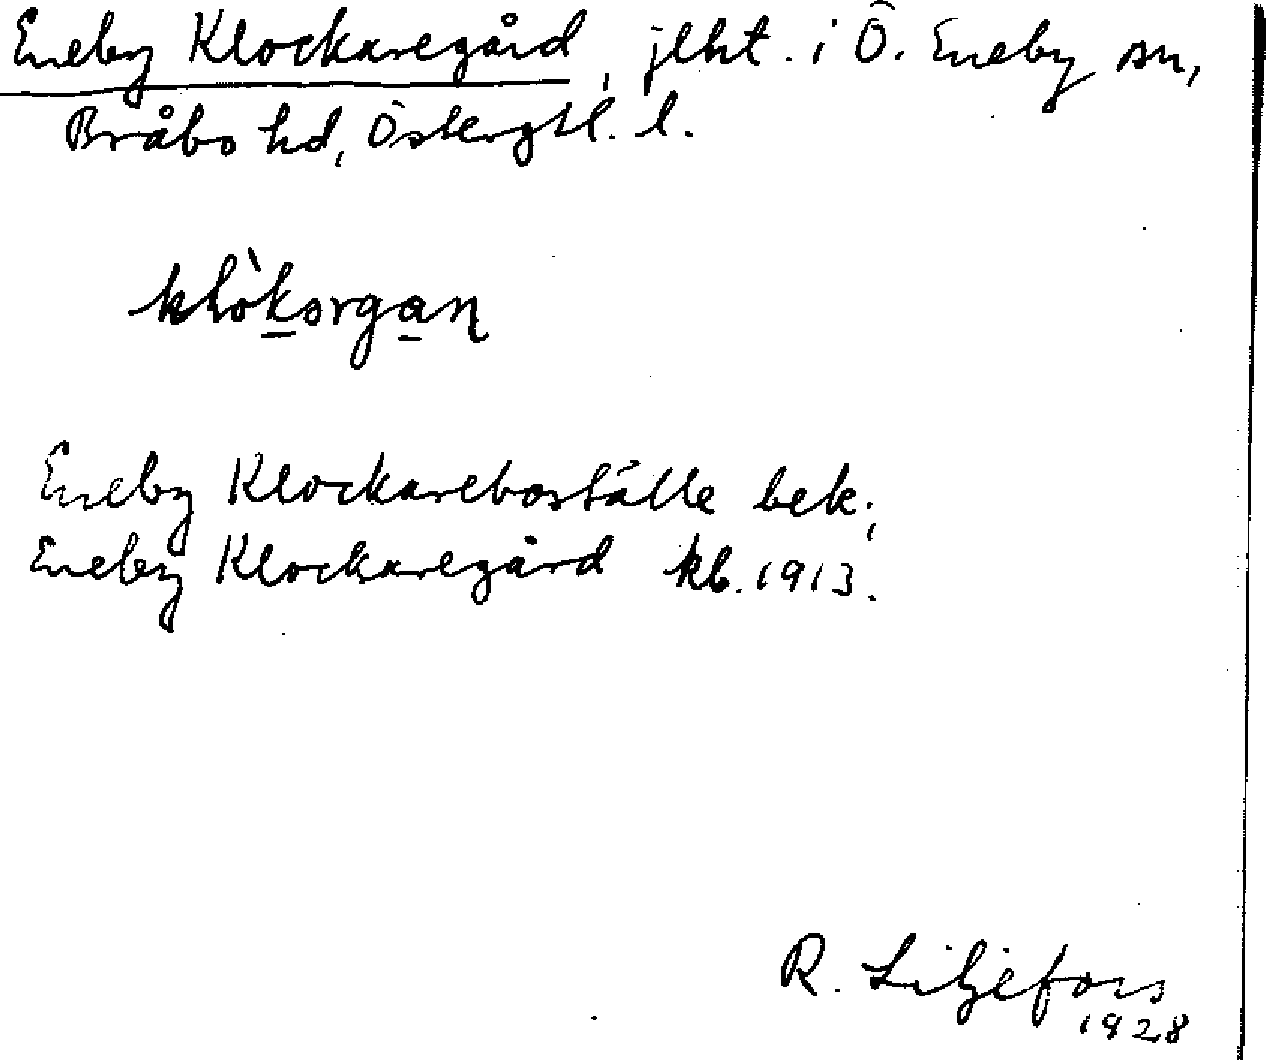 Eneby Klockaregård, jlht. i Ö. Eneby sn,
Bråbo hd, Östergtl. l.
klòkorgan
Eneby Klockareboställe bek;
Eneby Klockaregård kb. 1913.
R. Liljefors
1928